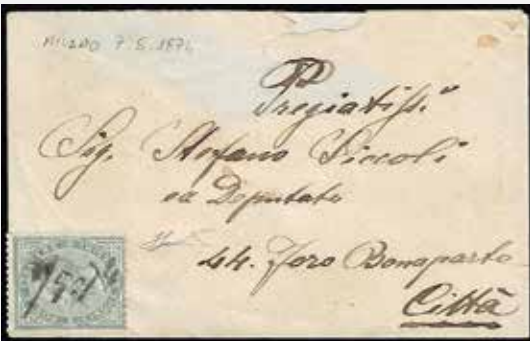 MILANO 7.5.1874
Pregiatiss.o
Sig. Stefano Piccoli
ex Deputato
44. Foro Bonaparte
Città
7/5 74